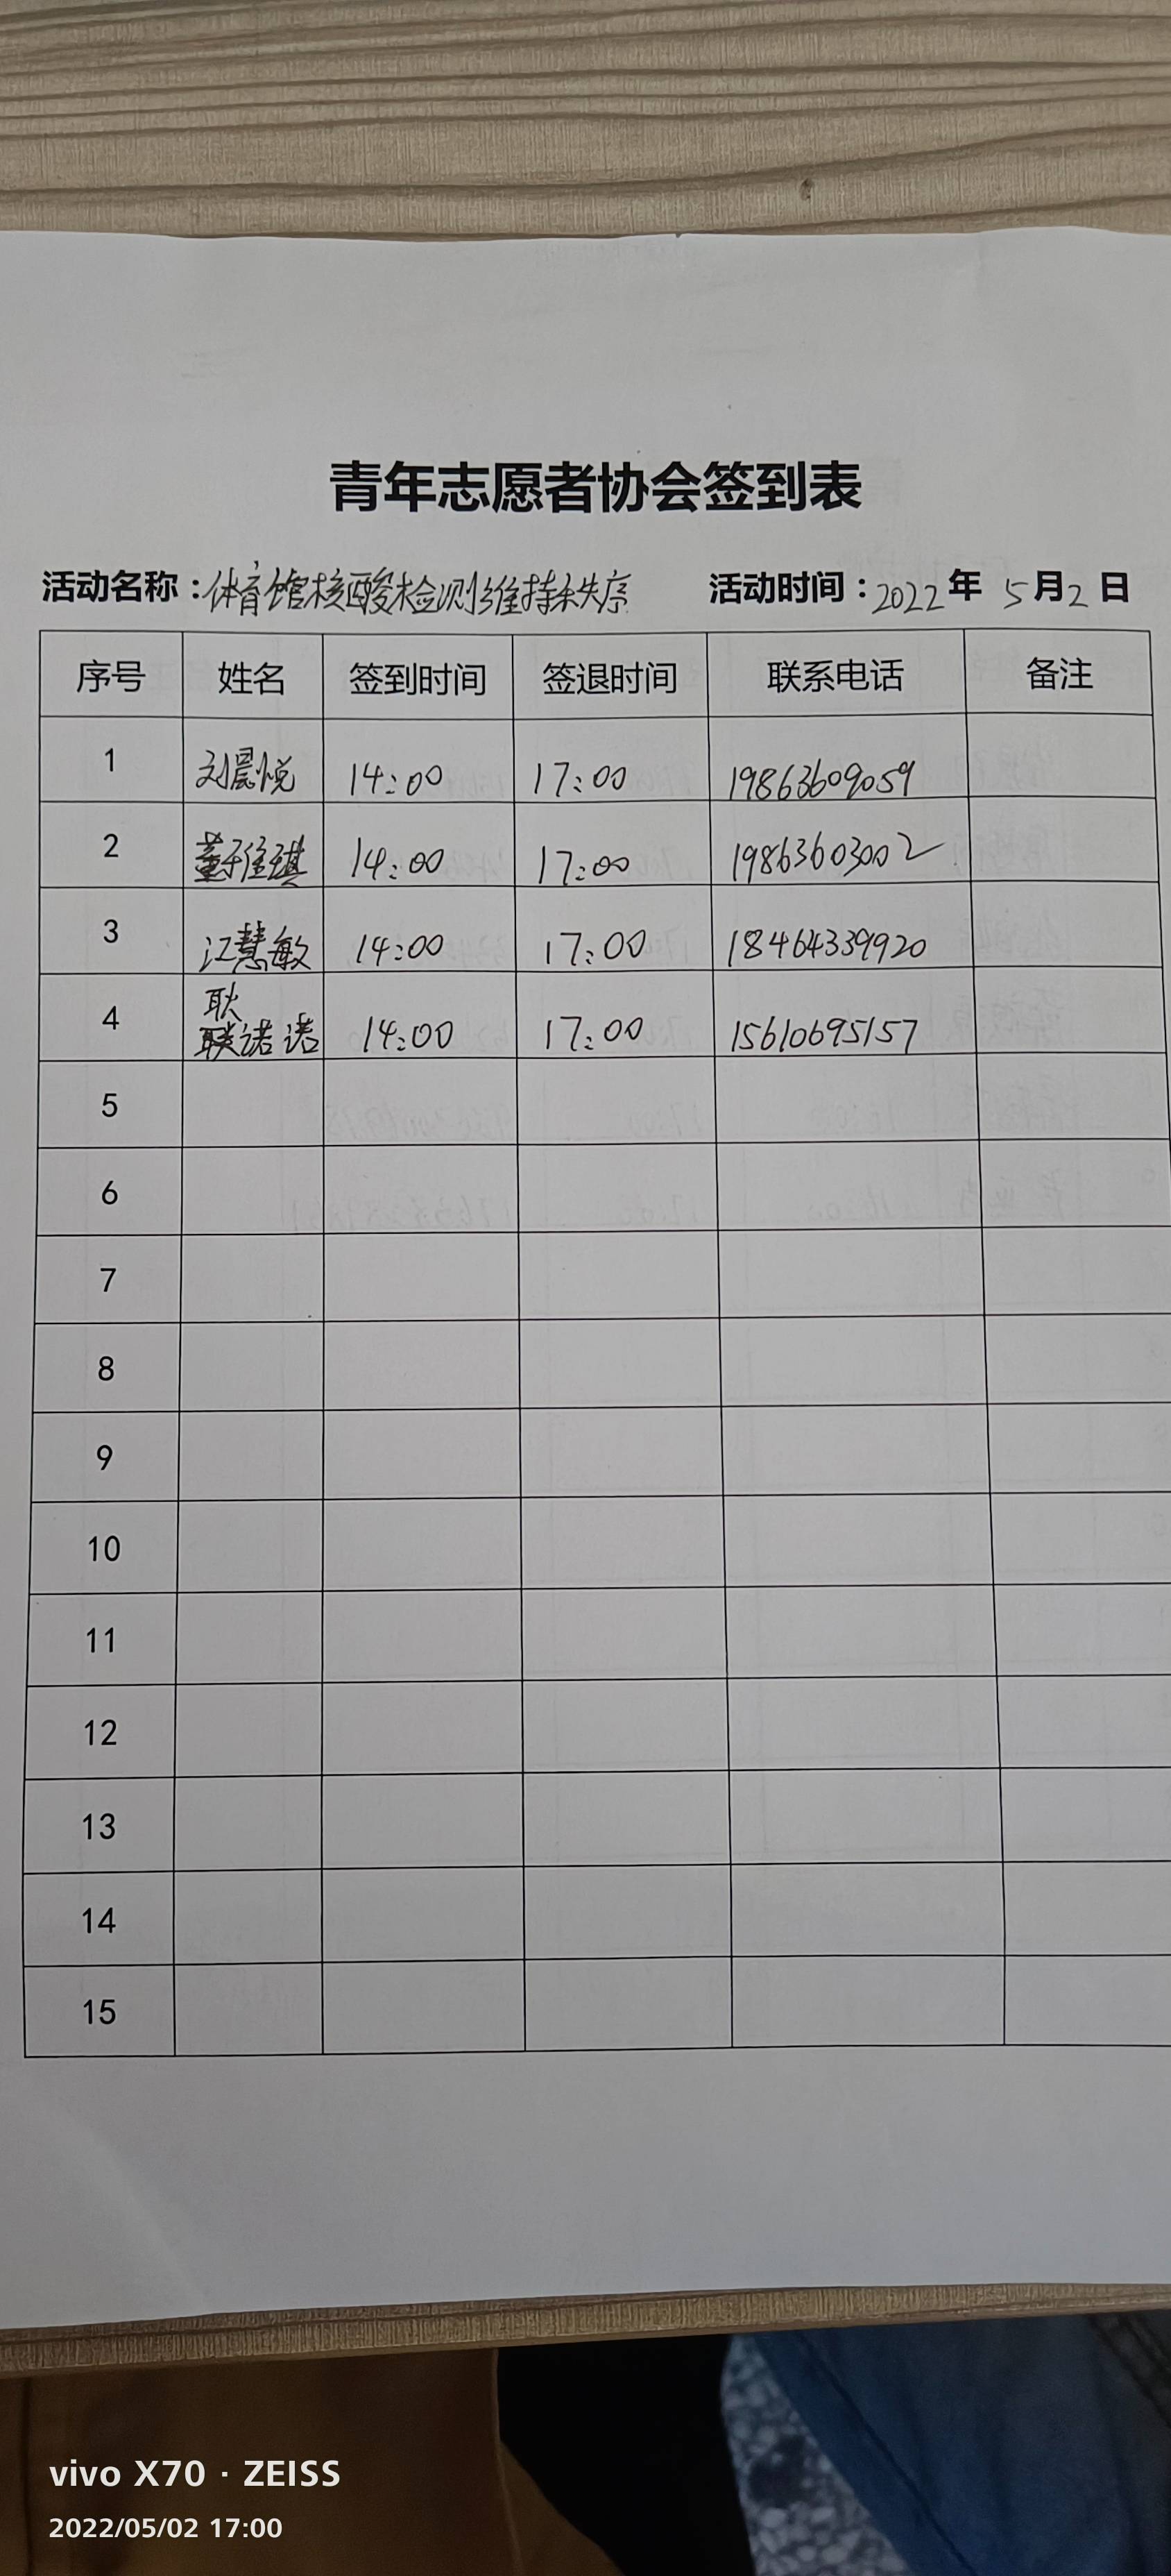 青年志愿者协会签到表
活动名称：体育馆核酸检测维持秩序 活动时间：2022年 5月2日
序号 姓名 签到时间 签退时间 联系电话 备注
1 刘晨悦 14:00 17:00 19863609059
2 董于佳琪 14:00 17:00 19863603002
3 江慧敏 14:00 17:00 18464339920
耿
4 诺诺 14:00 17:00 15610695157
5
6
7
8
9
10
11
12
13
14
15
vivo X70 · ZEISS
2022/05/02 17:00